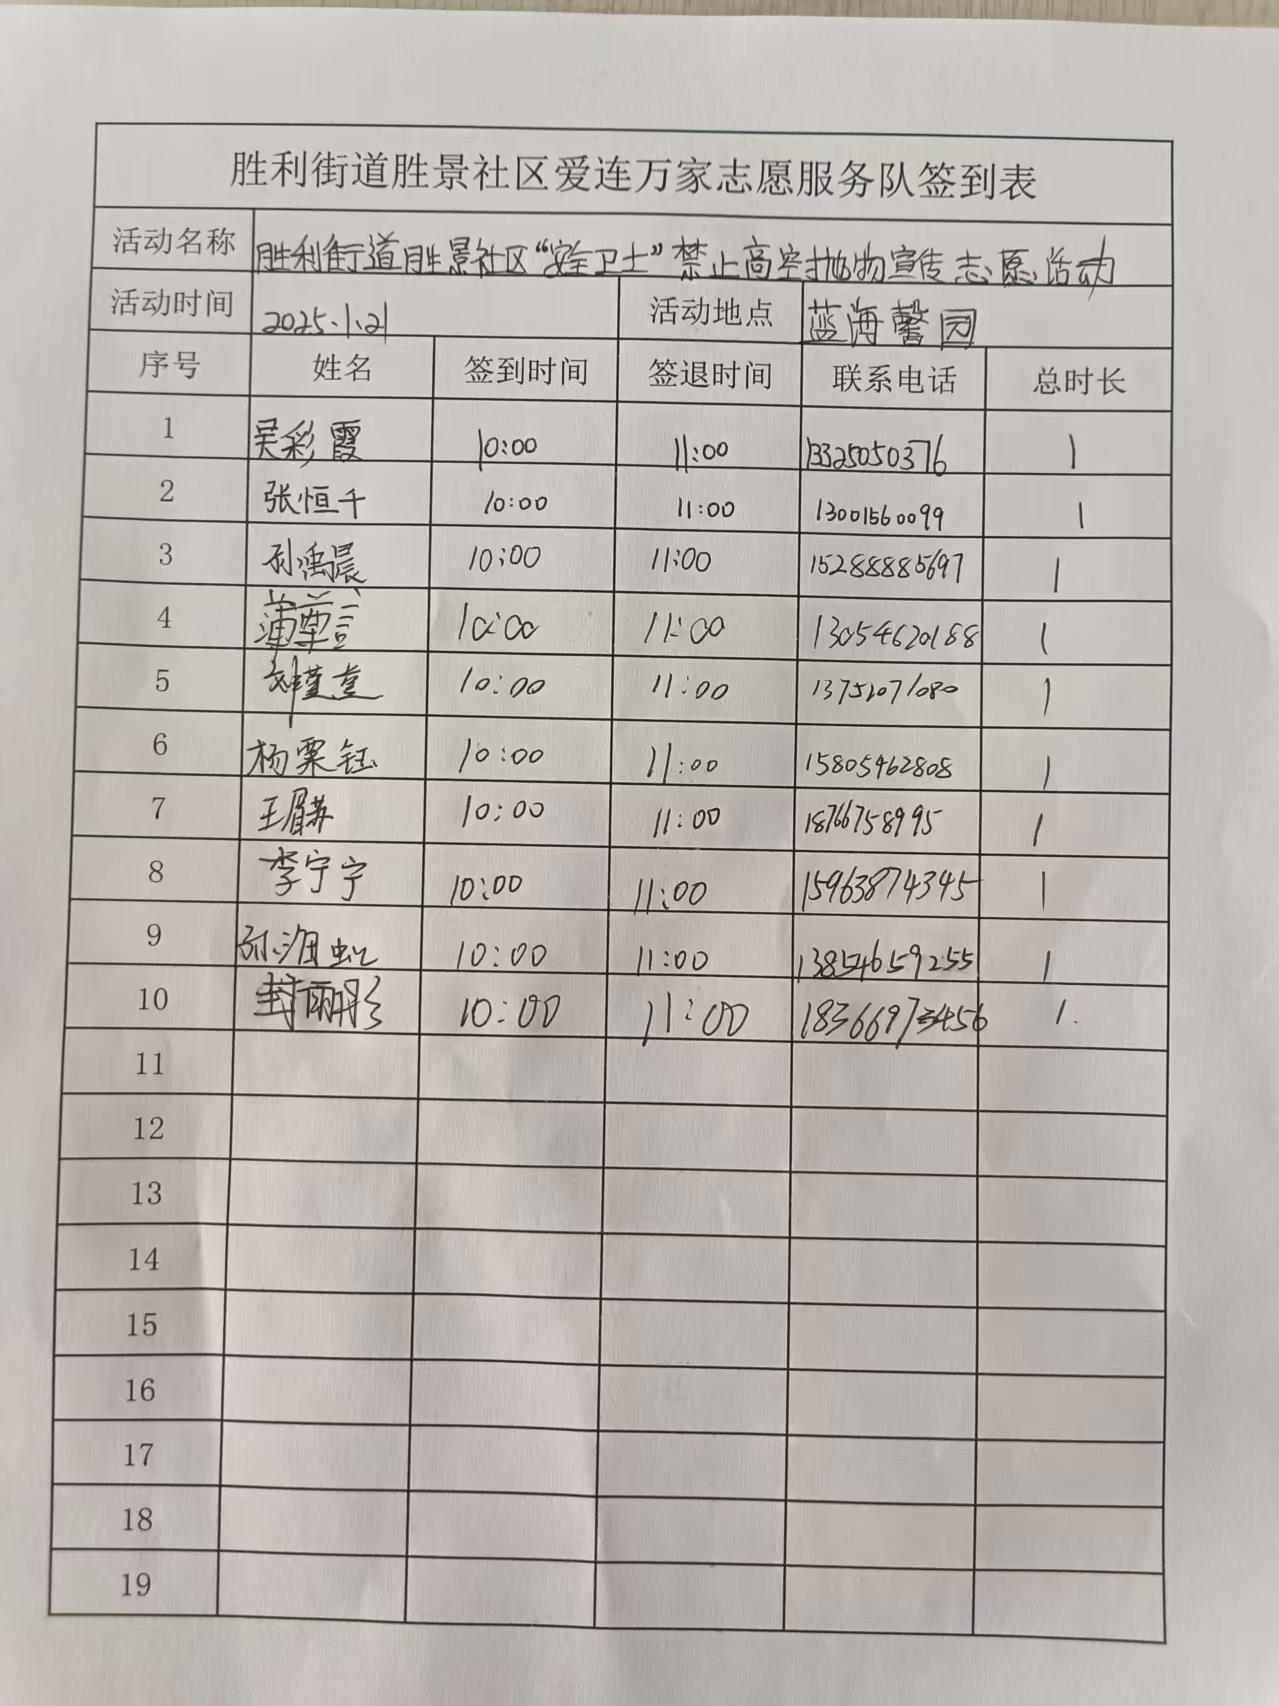 胜利街道胜景社区爱连万家志愿服务队签到表
活动名称 胜利街道胜景社区“安全卫士”禁止高空抛物宣传志愿活动
活动时间 2025.1.21 活动地点 蓝海馨园
序号 姓名 签到时间 签退时间 联系电话 总时长
1 吴彩霞 10:00 11:00 13325050376 1
2 张恒千 10:00 11:00 13001560099 1
3 孙禹晨 10:00 11:00 15288885697 1
4 10:00 11:00 13054620188 1
5 10:00 11:00 1
6 杨栗钰 10:00 11:00 15805462808 1
7 王眉苏 10:00 11:00 18766758995 1
8 李宁宁 10:00 11:00 15963874345 1
9 10:00 11:00 13854659255 1
10 封雨彤 10:00 11:00 18366973456 1.
11
12
13
14
15
16
17
18
19